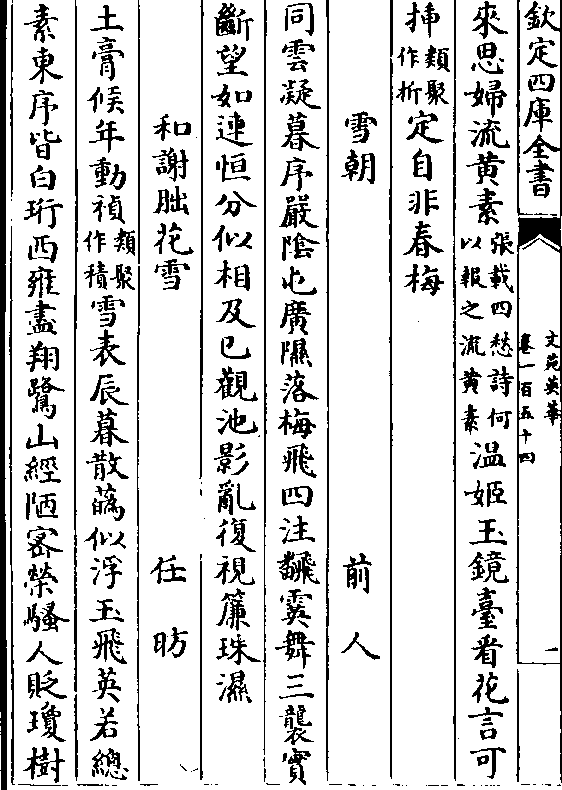 欽定四庫全書
文苑英華
卷一百五十四
一
來思婦流黄素張載四愁詩何以報之流黄素温姬玉鏡臺看花言可
揷類聚作折定自非春梅
雪朝 前人
同雲凝暮序嚴陰屯廣隰落梅飛四注飜霙舞三襲實
斷望如連恒分似相及已觀池影亂復視簾珠濕
和謝朏花雪 任昉
土膏候年動禎類聚作積雪表辰暮散葤似浮玉飛英若總
素東序皆白珩西雍盡翔鷺山經陋宻榮騷人貶瓊樹